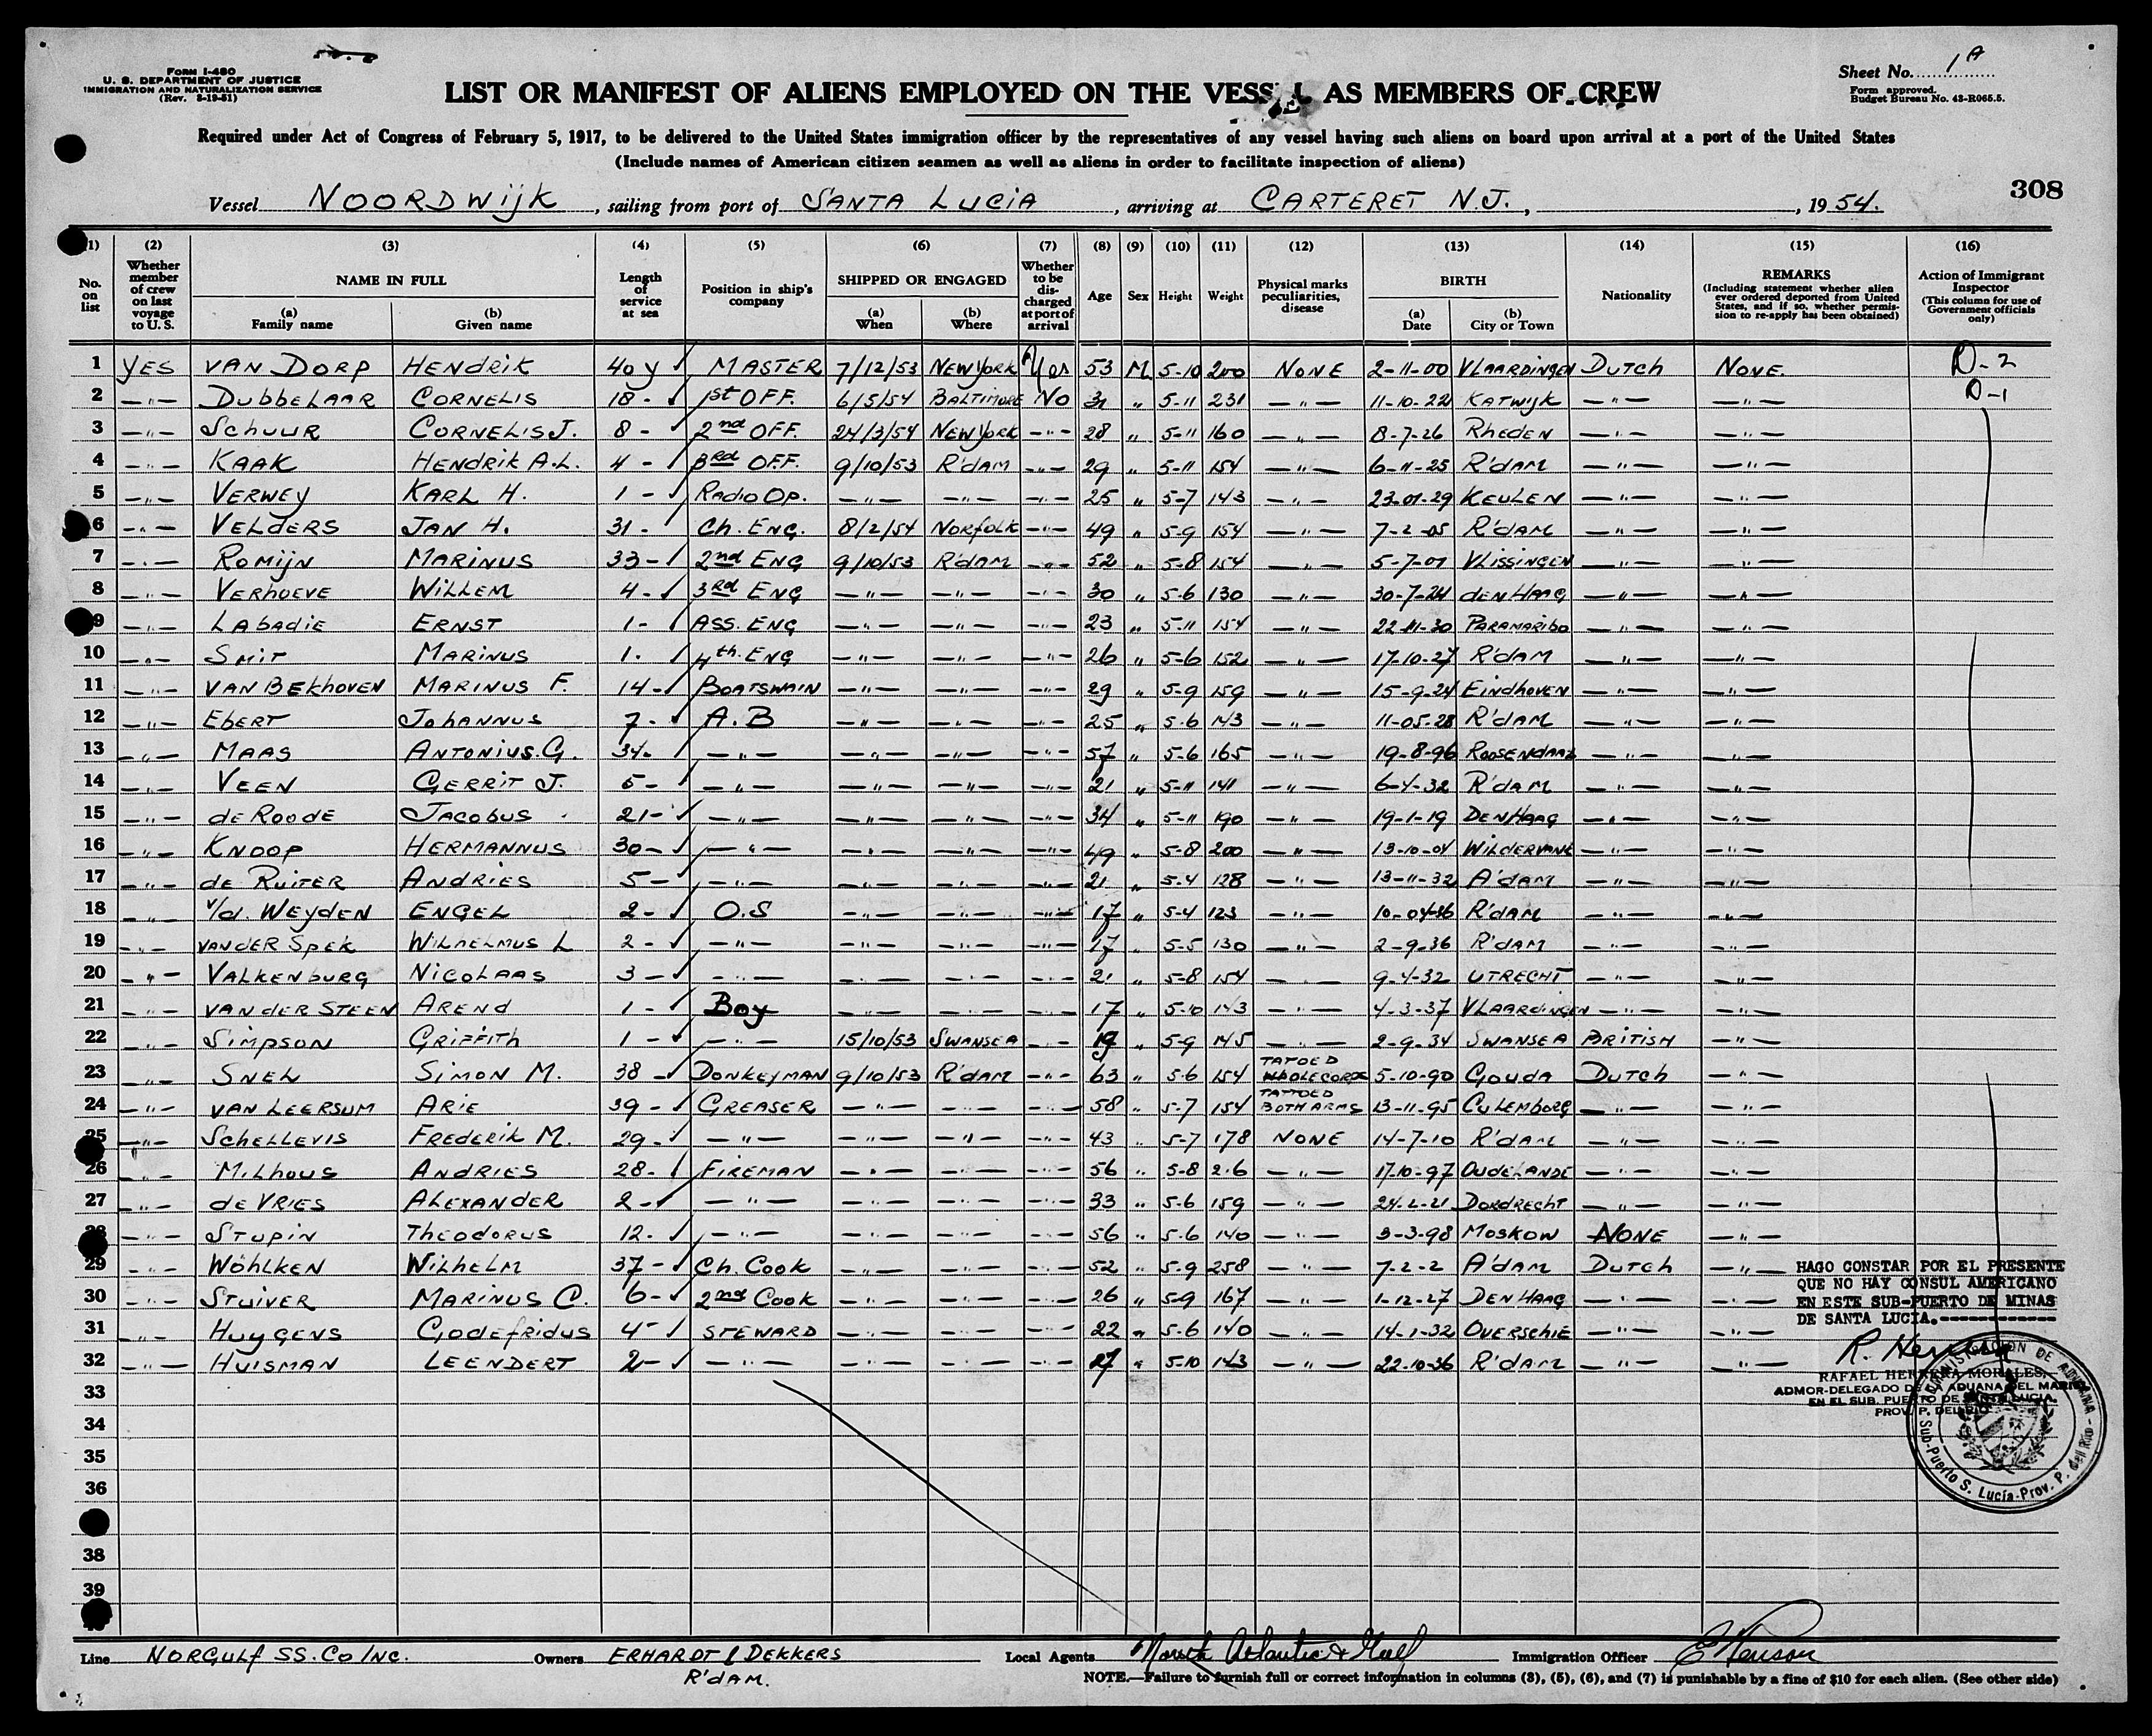 Form I-480
U. S. DEPARTMENT OF JUSTICE
IMMIGRATION AND NATURALIZATION SERVICE
(Rev. 3-19-51)
Sheet No. 1A
Form approved.
Budget Bureau No. 43-R065.5.
LIST OR MANIFEST OF ALIENS EMPLOYED ON THE VESSEL AS MEMBERS OF CREW
Required under Act of Congress of February 5, 1917, to be delivered to the United States immigration officer by the representatives of any vessel having such aliens on board upon arrival at a port of the United States
(Include names of American citizen seamen as well as aliens in order to facilitate inspection of aliens)
308
Vessel NOORDWIJK, sailing from port of SANTA LUCIA, arriving at CARTERET N.J., 1954.
(1) (2) (3) (4) (5) (6) (7) (8) (9) (10) (11) (12) (13) (14) (15) (16)
No. on list
Whether member of crew on last voyage to U. S.
NAME IN FULL
(a) Family name
(b) Given name
Length of service at sea
Position in ship's company
SHIPPED OR ENGAGED
(a) When
(b) Where
Whether to be discharged at port of arrival
Age
Sex
Height
Weight
Physical marks peculiarities, disease
BIRTH
(a) Date
(b) City or Town
Nationality
REMARKS
(Including statement whether alien ever ordered deported from United States, and if so, whether permission to re-apply has been obtained)
Action of Immigrant Inspector
(This column for use of Government officials only)
1 YES VAN DORP HENDRIK 40 y MASTER 7/12/53 NEW YORK Yes 53 M 5-10 200 NONE 2-11-00 VLAARDINGEN DUTCH NONE. D-2
2 —"— DUBBELAAR CORNELIS 18 - 1st OFF. 6/5/54 BALTIMORE NO 31 " 5-11 231 —"— 11-10-22 KATWIJK —"— —"— D-1
3 —"— SCHUUR CORNELIS J. 8 - 2nd OFF. 24/3/54 NEW YORK —"— 28 " 5-11 160 —"— 8-7-26 RHEDEN —"— —"—
4 —"— KAAK HENDRIK A.L. 4 - 3RD OFF. 9/10/53 R'DAM —"— 29 " 5-11 154 —"— 6-11-25 R'DAM —"— —"—
5 —"— VERWEY KARL H. 1 - RADIO OP. —"— —"— —"— 25 " 5-7 143 —"— 23-01-29 KEULEN —"— —"—
6 —"— VELDERS JAN H. 31 - CH. ENG. 8/2/54 NORFOLK —"— 49 " 5-9 154 —"— 7-2-05 R'DAM —"— —"—
7 —"— ROMIJN MARINUS 33 - 2nd ENG 9/10/53 R'DAM —"— 52 " 5-8 154 —"— 5-7-01 VLISSINGEN —"— —"—
8 —"— VERHOEVE WILLEM 4 - 3RD ENG —"— —"— —"— 30 " 5-6 130 —"— 30-7-24 DEN HAAG —"— —"—
9 —"— LABADIE ERNST 1 - ASS. ENG —"— —"— —"— 23 " 5-11 154 —"— 22-11-30 PARAMARIBO —"— —"—
10 —"— SMIT MARINUS 1 . 4th. ENG —"— —"— —"— 26 " 5-6 152 —"— 17-10-27 R'DAM —"— —"—
11 —"— VAN BEKHOVEN MARINUS F. 14 - BOATSWAIN —"— —"— —"— 29 " 5-9 159 —"— 15-9-24 EINDHOVEN —"— —"—
12 —"— EBERT JOHANNUS 7 - A.B —"— —"— —"— 25 " 5-6 143 —"— 11-05-28 R'DAM —"— —"—
13 —"— MAAS ANTONIUS. G. 34 - —"— —"— —"— —"— 57 " 5-6 165 —"— 19-8-96 ROOSENDAAL —"— —"—
14 —"— VEEN GERRIT J. 5 - —"— —"— —"— —"— 21 " 5-11 141 —"— 6-4-32 R'DAM —"— —"—
15 —"— DE ROODE JACOBUS 21 - —"— —"— —"— —"— 34 " 5-11 190 —"— 19-1-19 DEN HAAG —"— —"—
16 —"— KNOOP HERMANNUS 30 - —"— —"— —"— —"— 49 " 5-8 200 —"— 13-10-04 WILDERVANK —"— —"—
17 —"— DE RUITER ANDRIES 5 - —"— —"— —"— —"— 21 " 5-4 128 —"— 13-11-32 A'DAM —"— —"—
18 —"— V/D. WEYDEN ENGEL 2 - O.S —"— —"— —"— 17 " 5-4 123 —"— 10-04-36 R'DAM —"— —"—
19 —"— VAN DER SPEK WILHELMUS L 2 - —"— —"— —"— —"— 17 " 5-5 130 —"— 2-9-36 R'DAM —"— —"—
20 —"— VALKENBURG NICOLAAS 3 - —"— —"— —"— —"— 21 " 5-8 154 —"— 9-4-32 UTRECHT —"— —"—
21 —"— VAN DER STEEN AREND 1 - BOY —"— —"— —"— 17 " 5-10 143 —"— 4-3-37 VLAARDINGEN —"— —"—
22 —"— SIMPSON GRIFFITH 1 - —"— 15/10/53 SWANSEA —"— 19 " 5-9 145 —"— 2-9-34 SWANSEA BRITISH —"—
23 —"— SNEL SIMON M. 38 - DONKEYMAN 9/10/53 R'DAM —"— 63 " 5-6 154 TATOED WHOLE CORPS 5-10-90 GOUDA DUTCH —"—
24 —"— VAN LEERSUM ARIE 39 - GREASER —"— —"— —"— 58 " 5-7 154 TATTOED BOTH ARMS 13-11-95 CULEMBORG —"— —"—
25 —"— SCHELLEVIS FREDERIK M. 29 - —"— —"— —"— —"— 43 " 5-7 178 NONE 14-7-10 R'DAM —"— —"—
26 —"— MILHOUS ANDRIES 28 - FIREMAN —"— —"— —"— 56 " 5-8 216 —"— 17-10-97 OUDELANDE —"— —"—
27 —"— DE VRIES ALEXANDER 2 - —"— —"— —"— —"— 33 " 5-6 159 —"— 24-2-21 DORDRECHT —"— —"—
28 —"— STUPIN THEODORUS 12 - —"— —"— —"— —"— 56 " 5-6 140 —"— 3-3-98 MOSKOW NONE —"—
29 —"— WÖHLKEN WILHELM 37 - CH. COOK —"— —"— —"— 52 " 5-9 258 —"— 7-2-2 A'DAM DUTCH —"—
30 —"— STUIVER MARINUS C. 6 - 2nd COOK —"— —"— —"— 26 " 5-9 167 —"— 1-12-27 DEN HAAG —"— —"—
31 —"— HUYGENS GODEFRIDUS 4 - STEWARD —"— —"— —"— 22 " 5-6 140 —"— 14-1-32 OVERSCHIE —"— —"—
32 —"— HUISMAN LEENDERT 2 - —"— —"— —"— —"— 17 " 5-10 143 —"— 22-10-36 R'DAM —"— —"—
HAGO CONSTAR POR EL PRESENTE
QUE NO HAY CONSUL AMERICANO
EN ESTE SUB-PUERTO DE MINAS
DE SANTA LUCIA.
RAFAEL HERRERA MORALES,
ADMOR-DELEGADO DE LA ADUANA DEL MARIEL
EN EL SUB. PUERTO DE SANTA LUCIA,
PROV. P. DEL RIO
ADMINISTRACION DE ADUANA
Sub-Puerto S. Lucía-Prov. P. del Río
33
34
35
36
38
39
Line NORGULF SS. CO INC. Owners ERHARDT & DEKKERS Local Agents North Atlantic & Gulf Immigration Officer
R'DAM.
NOTE.—Failure to furnish full or correct information in columns (3), (5), (6), and (7) is punishable by a fine of $10 for each alien. (See other side)